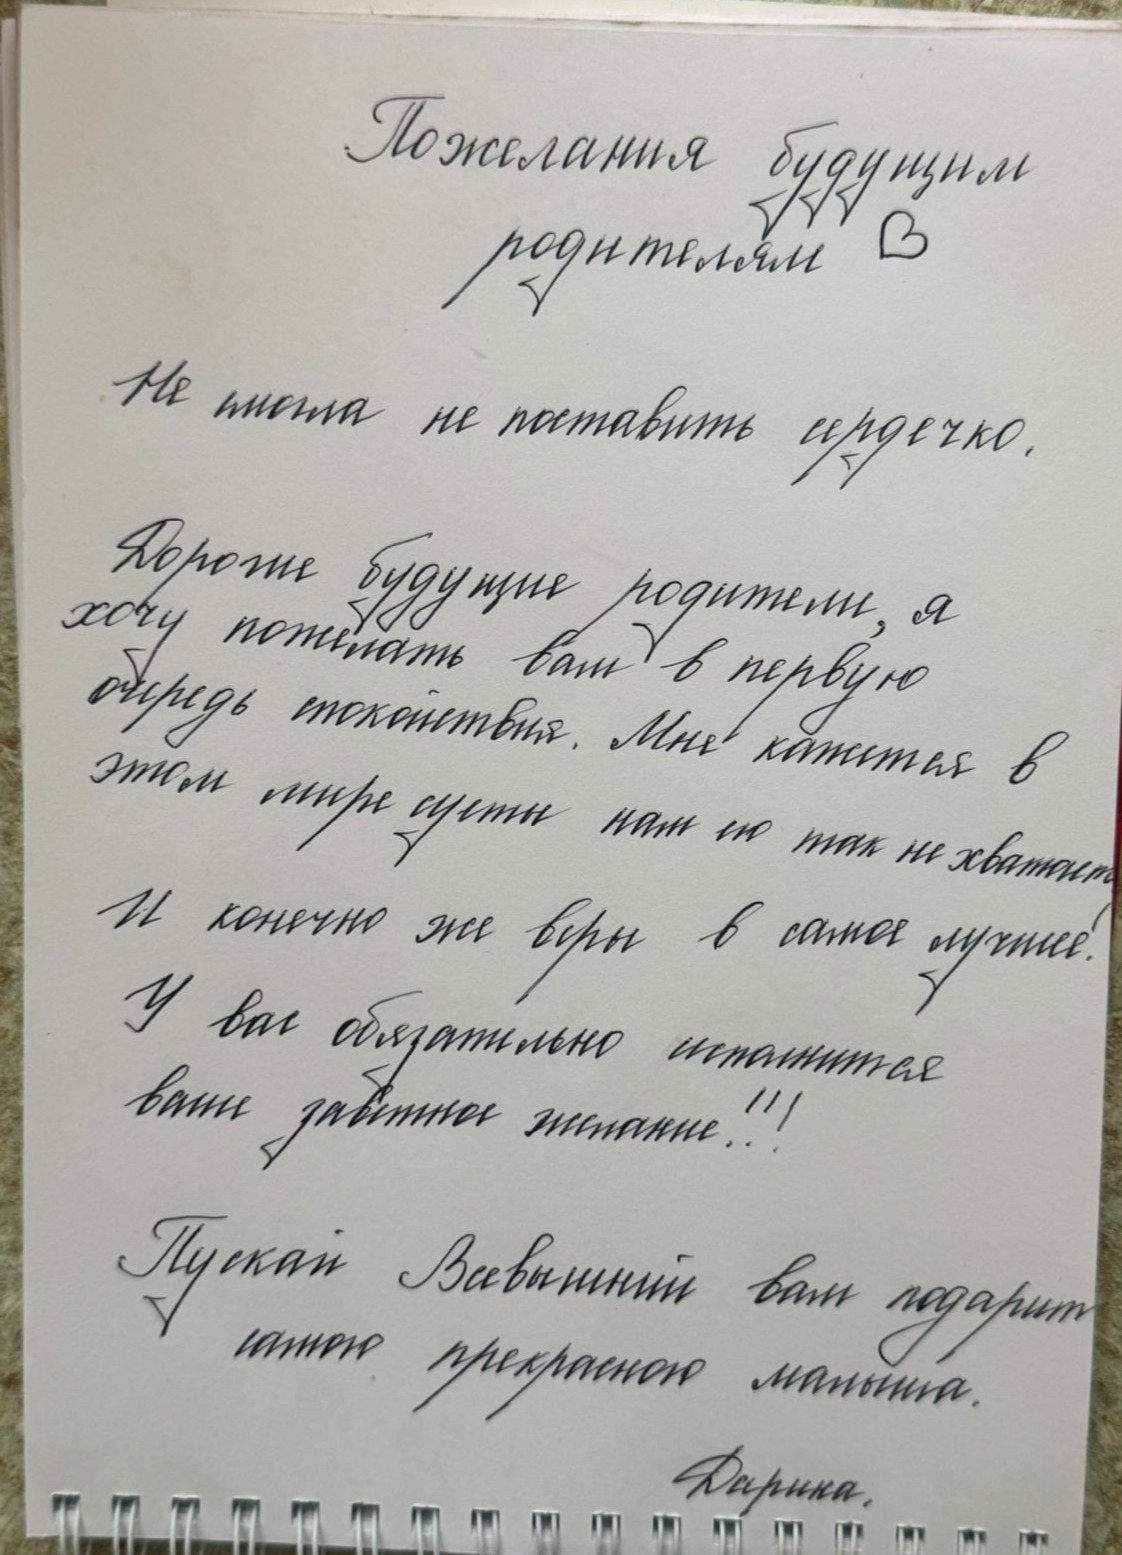 Пожелания будущим
родителям ♡
Не смогла не поставить сердечко.
Дорогие будущие родители, я
хочу пожелать вам в первую
очередь спокойствия. Мне кажется в
этом мире суеты нам его так не хватает
И конечно же веры в самое лучшее!
У вас обязательно исполнится
ваше заветное желание!!!
Пускай Всевышний вам подарит
самого прекрасного малыша.
Дарина.